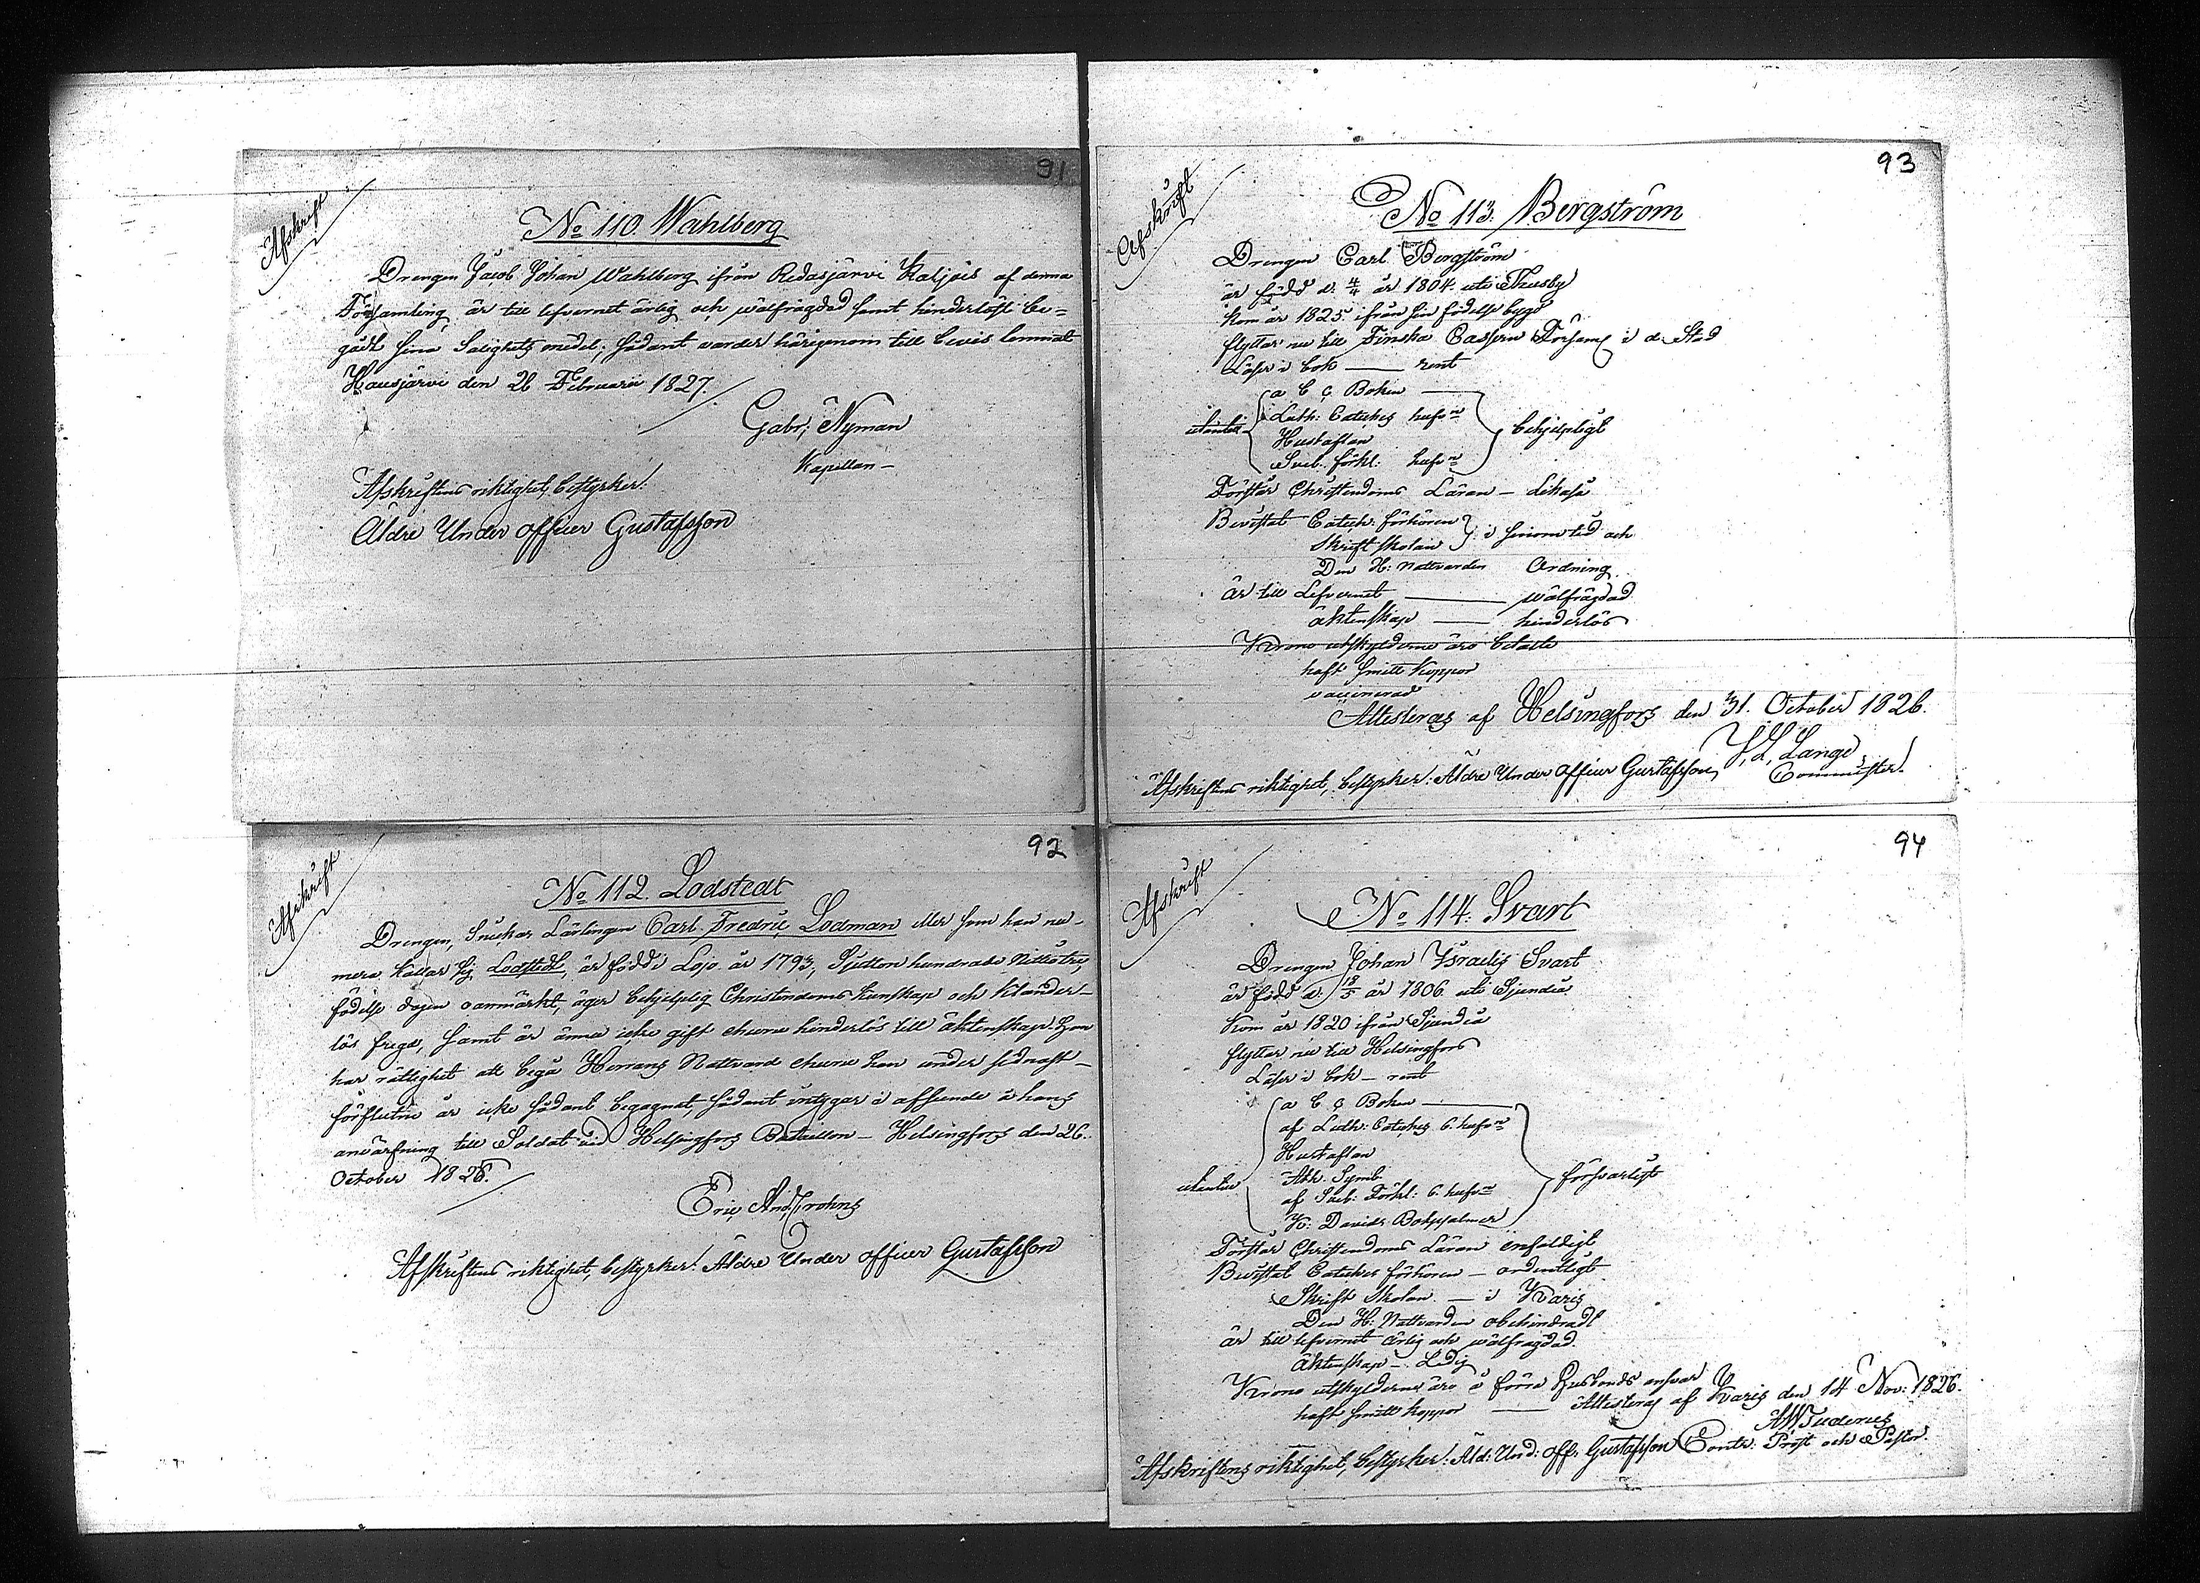 91
Afskrift
No 110. Wahlberg
Drengen Jacob Johan Wahlberg ifrån Ridasjärvi af denna
Församling är till lefvernet ärlig och wälfrägdad samt hinderlöst be=
gådt sina Salighets medel; sådant warder härigenom till bevis lemnadt
Hausjärvi den 26 Februarii 1827.
Gabr; Nyman
Kapellan
Afskriftens riktighet, bestyrker!
Äldre Under officer Gustafsson
92
Afskrift
No 112. Lodstedt
Drengen, Snickar Lärlingen Carl Fredric Lodman eller som han nu-
mera kallar sig Lodstedt, är född i Lojo år 1793, Sjutton hundrade Nittiotre,
födelse dagen oanmärkt, äger behjelplig Christendoms kunskap och klander-
lös fregd, samt är ännu icke gift ehuru hinderlös till äktenskap han
har rättighet att begå Herrans Nattvard ehuru han under sednast-
förflutne år icke sådant begagnat, sådant intygar i afseende å hans
anvärfning till Soldat vid Helsingfors Bataillon – Helsingfors den 26.
October 1826.
Eric And. Crohns
Afskriftens riktighet, bestyrker! Äldre Under officer Gustafsson
93
Afskrift
No 113. Bergström
Drengen Carl Bergström
är född d. 4/4 år 1804 uti Thusby
Kom år 1825 ifrån sin födelse bygd
flyttar nu till Finska Församl i d. Stad
Läser i bok — rent
a b c Boken —
utantill Luth: Catches hufv behjelpligt
Hustaflan
Sveb. förkl. hufv
Förstår Christendoms Läran – Likaså
Bevistat Catech: förhören
Skriftskolan i sinom tid och
Den H: Nattvarden Ordning
är till Lefvernet — wälfrägdad
äktenskap — hinderlös
Krono utskylderne äro betalte
haft Smitt Koppor
vaccinerad
Attesteras af Helsingfors den 31. October 1826.
Lange
Comminister.
Afskriftens riktighet, bestyrker! Äldre Under officer Gustafsson
94
Afskrift
No 114. Svart
Drengen Johan Israelis Svart
är född d. 18/5 år 1806 uti Sjundeå
Kom år 1820 ifrån Sjundeå
flyttar nu till Helsingfors
Läser i bok – rent
a b c Boken —
af Luth: Catches 6. hufv
Hustaflan
utantill Ath. Symb. försvarligt
af Sveb: Förkl: 6. hufv
K: Davids Botpsalmer
Förstår Christendoms Läran enfaldigt
Bevistat Cateches förhören – ordentligt
Skrift Skolan — i Karis
Den H: Nattvarden obehindradt
är till lefvernet ärlig och wälfragdad.
Äktenskap – Ledig
Krono utskylderne äro å förra Husbonds ansvar
haft Smitt koppor — Attesteras af Karis den 14 Nov: 1826.
Prost och Pastor.
Afskriftens riktighet, bestyrker! Äld: Und: off: Gustafsson